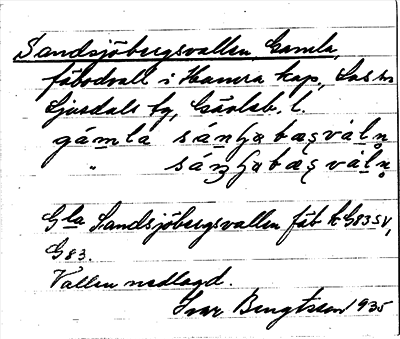 Sandsjöbergsvallen, Gamla,
fäbodvall i Hamra kap., Los sn
Ljusdals tg, Gävleb. l.
gámla sánʃəbæṣvàlṇ
" sánʃəbæṣvàlṇ
Gla Sandsjöbergsvallen fäb k G83SV,
G83.
Vallen nedlagd.
Ivar Bengtsson 1935